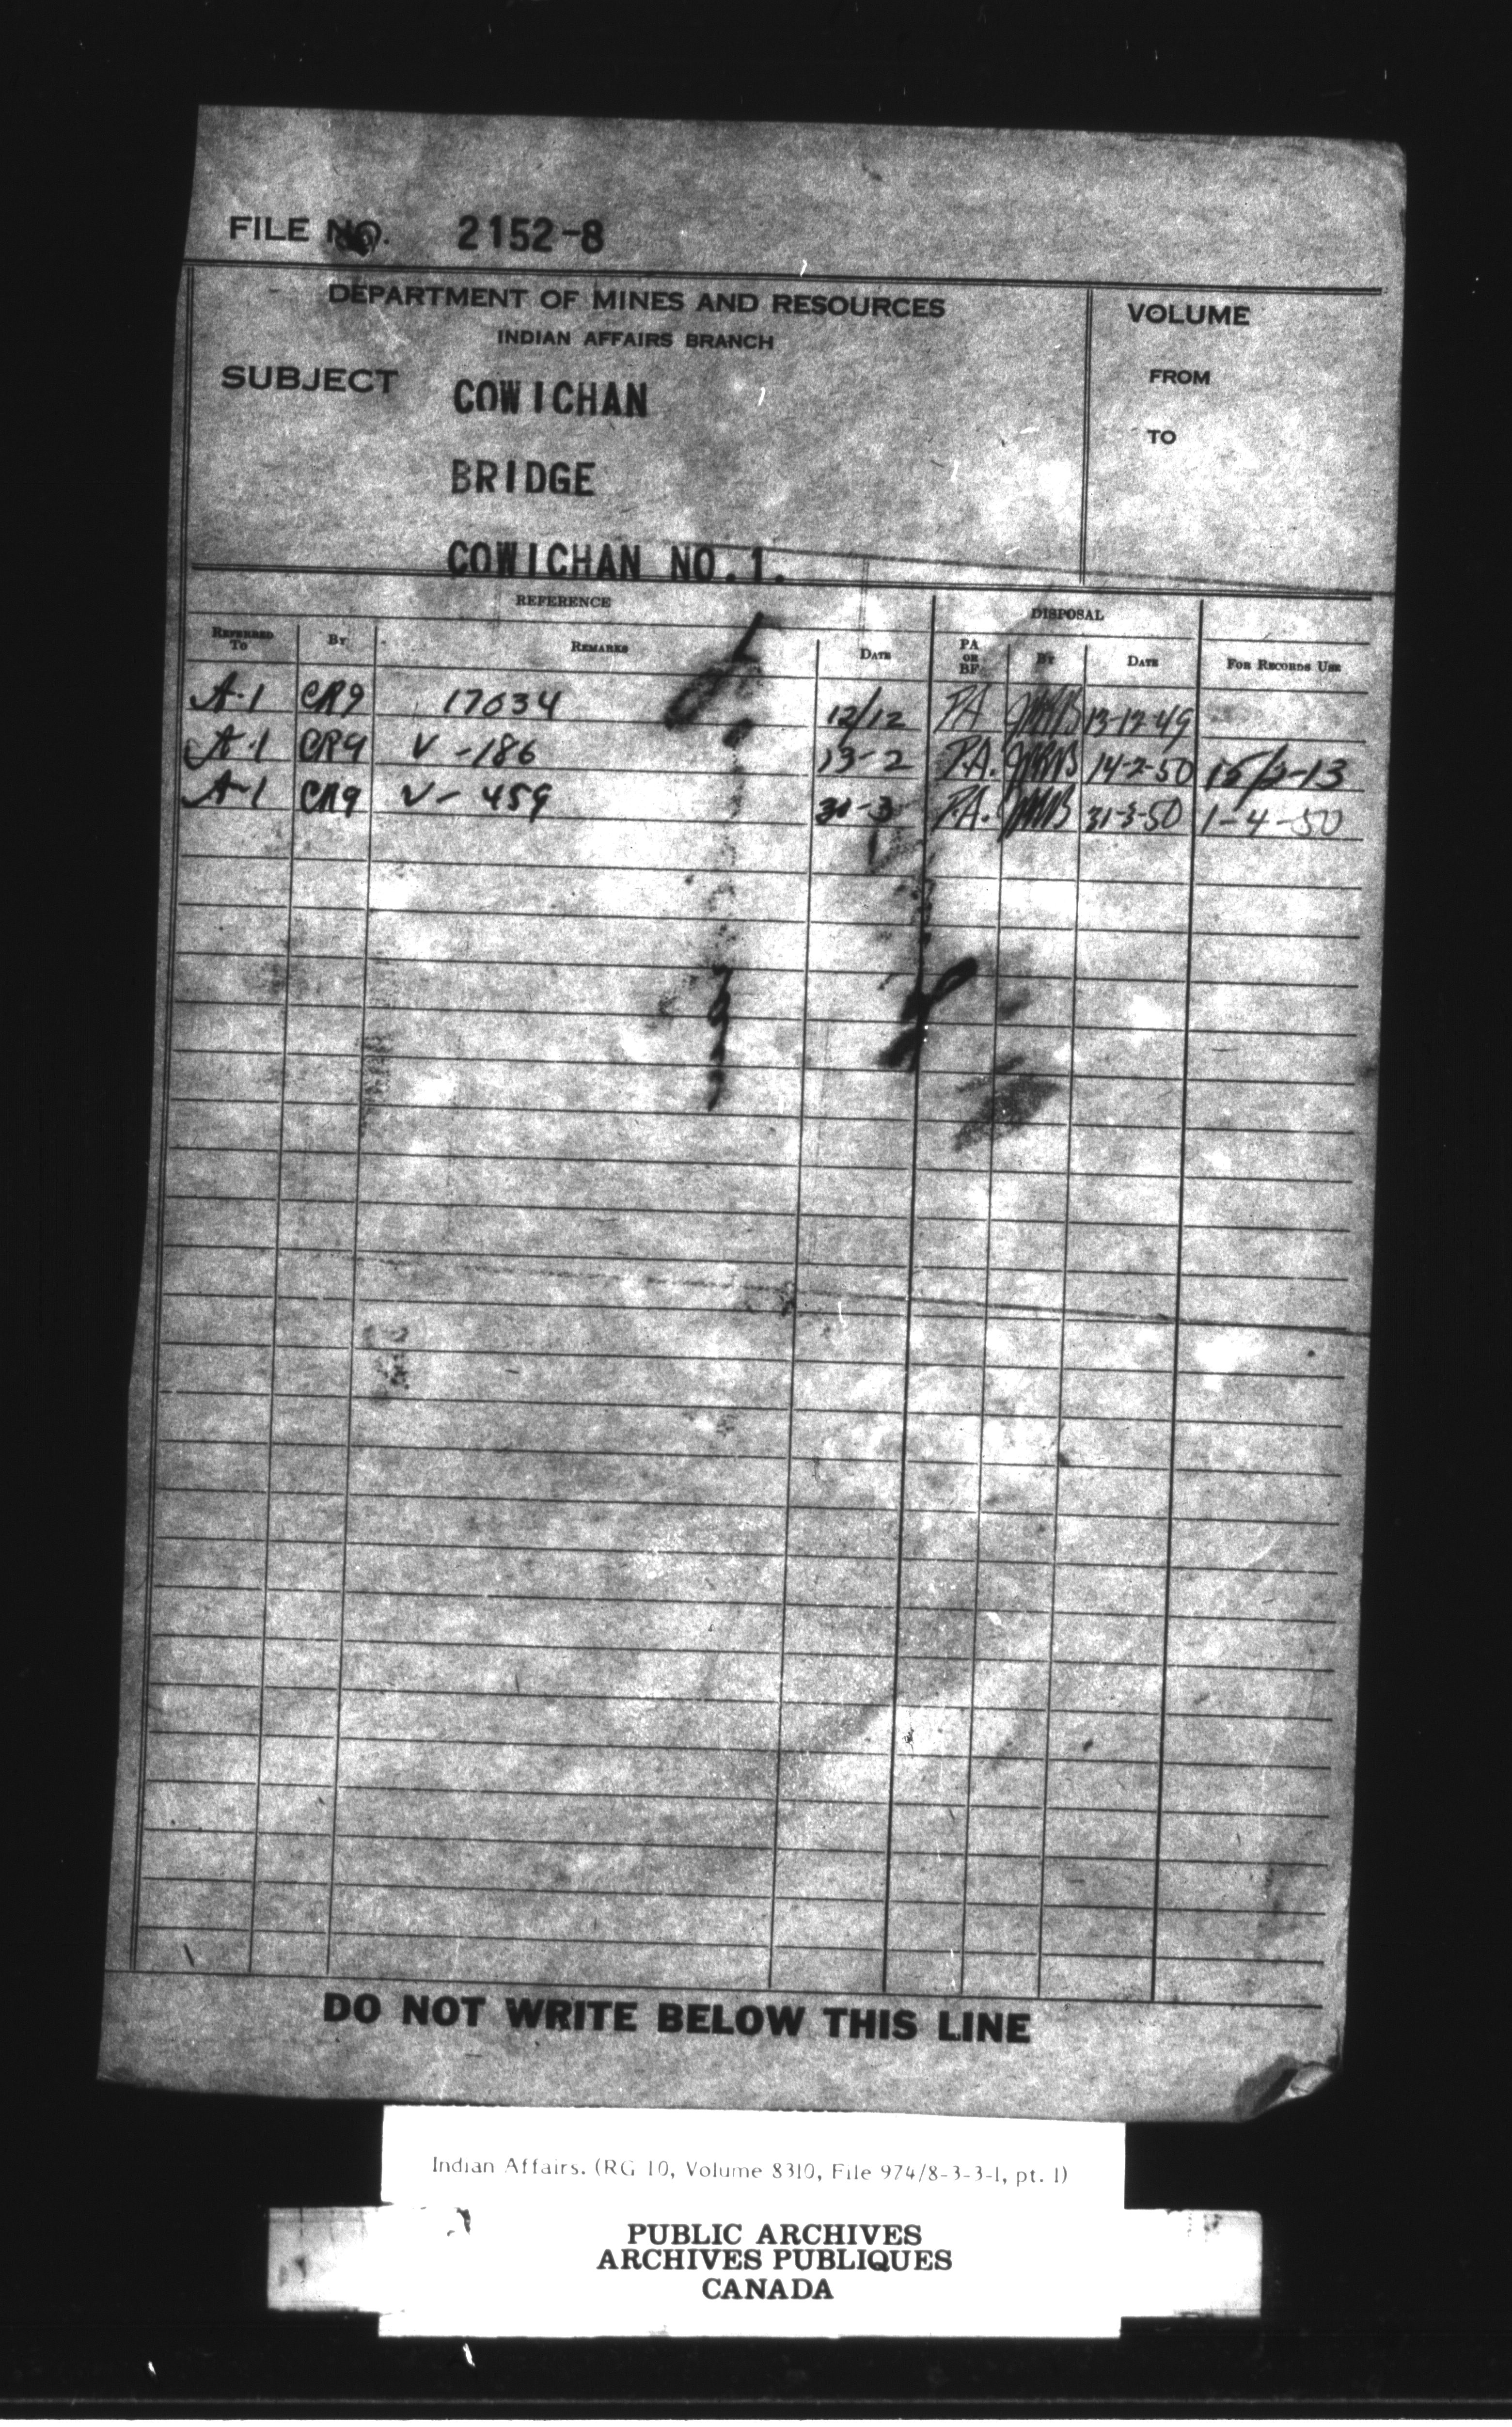 FILE NO. 2152-8
DEPARTMENT OF MINES AND RESOURCES
INDIAN AFFAIRS BRANCH
VOLUME
FROM
TO
SUBJECT COWICHAN
BRIDGE
COWICHAN NO.1.
REFERENCE DISPOSAL
REFERRED TO BY REMARKS DATE PA OR BF BY DATE FOR RECORDS USE
A-1 CR9 17034 12/12 PA 13-12-49
A-1 CR9 V-186 13-2 P.A. 14-2-50
A-1 CR9 V-459 31-3 P.A. 31-3-50 1-4-50
DO NOT WRITE BELOW THIS LINE
Indian Affairs. (RG 10, Volume 8310, File 974/8-3-3-1, pt. 1)
PUBLIC ARCHIVES
ARCHIVES PUBLIQUES
CANADA